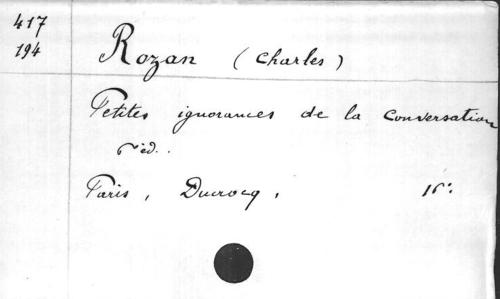 417
194
Rozan (Charles)
Petites ignorances de la conversation
éd.
Paris, Ducrocq,